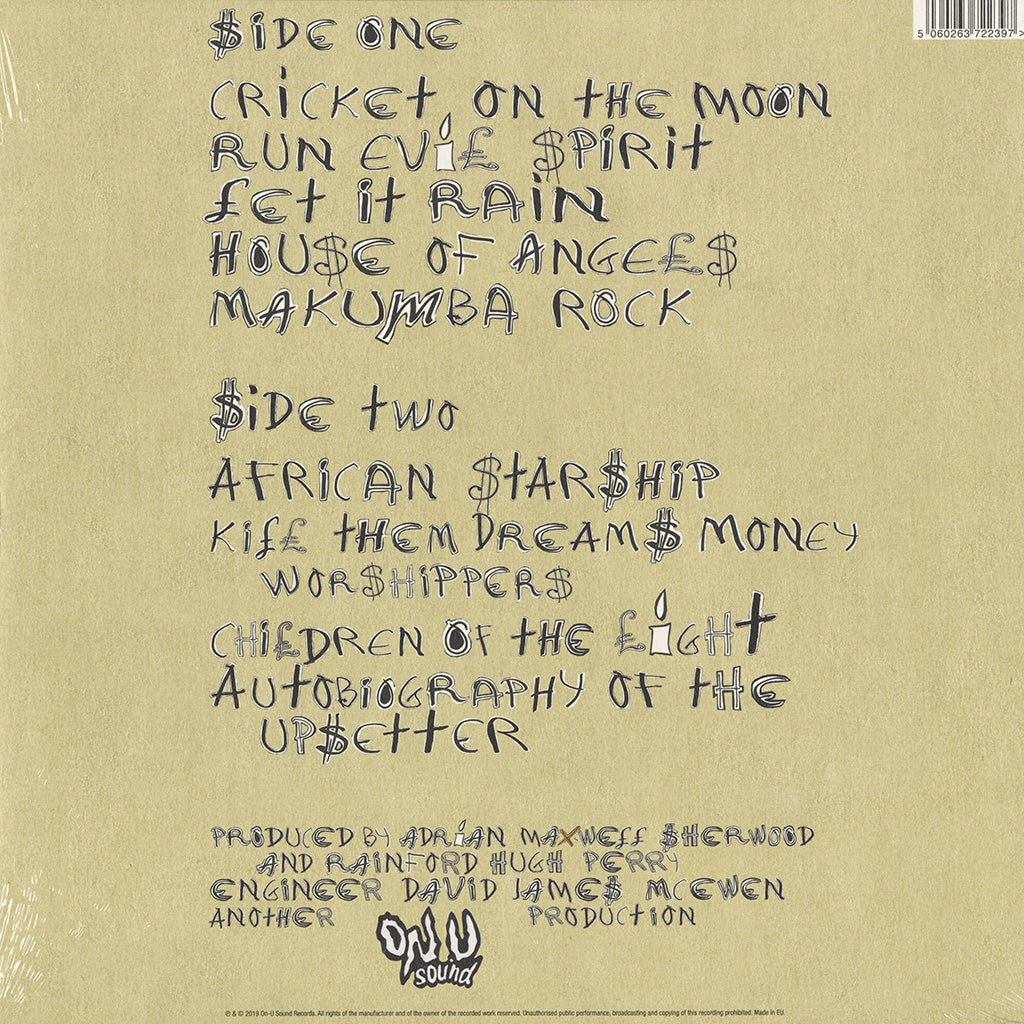 5 060263 722397 >
$iDE ONE
CRiCKEt ON tHE MOON
RUN EVi£ $PiRit
£Et it RAiN
HOU$E OF ANGE£$
MAKUMBA ROCK
$iDE tWO
AFRiCAN $tAR$HiP
Ki££ tHEM DREAM$ MONEY
WOR$HiPPER$
CHi£DREN OF tHE £iGHt
AUtOBiOGRAPHY OF tHE
UP$EttER
PRODUCED BY ADRiAN MAXWE££ $HERWOOD
AND RAiNFORD HUGH PERRY
ENGiNEER DAViD JAME$ MCEWEN
ANOtHER ON U sound PRODUCtiON
℗ & © 2019 On-U Sound Records. All rights of the manufacturer and of the owner of the recorded work reserved. Unauthorised public performance, broadcasting and copying of this recording prohibited. Made in EU.